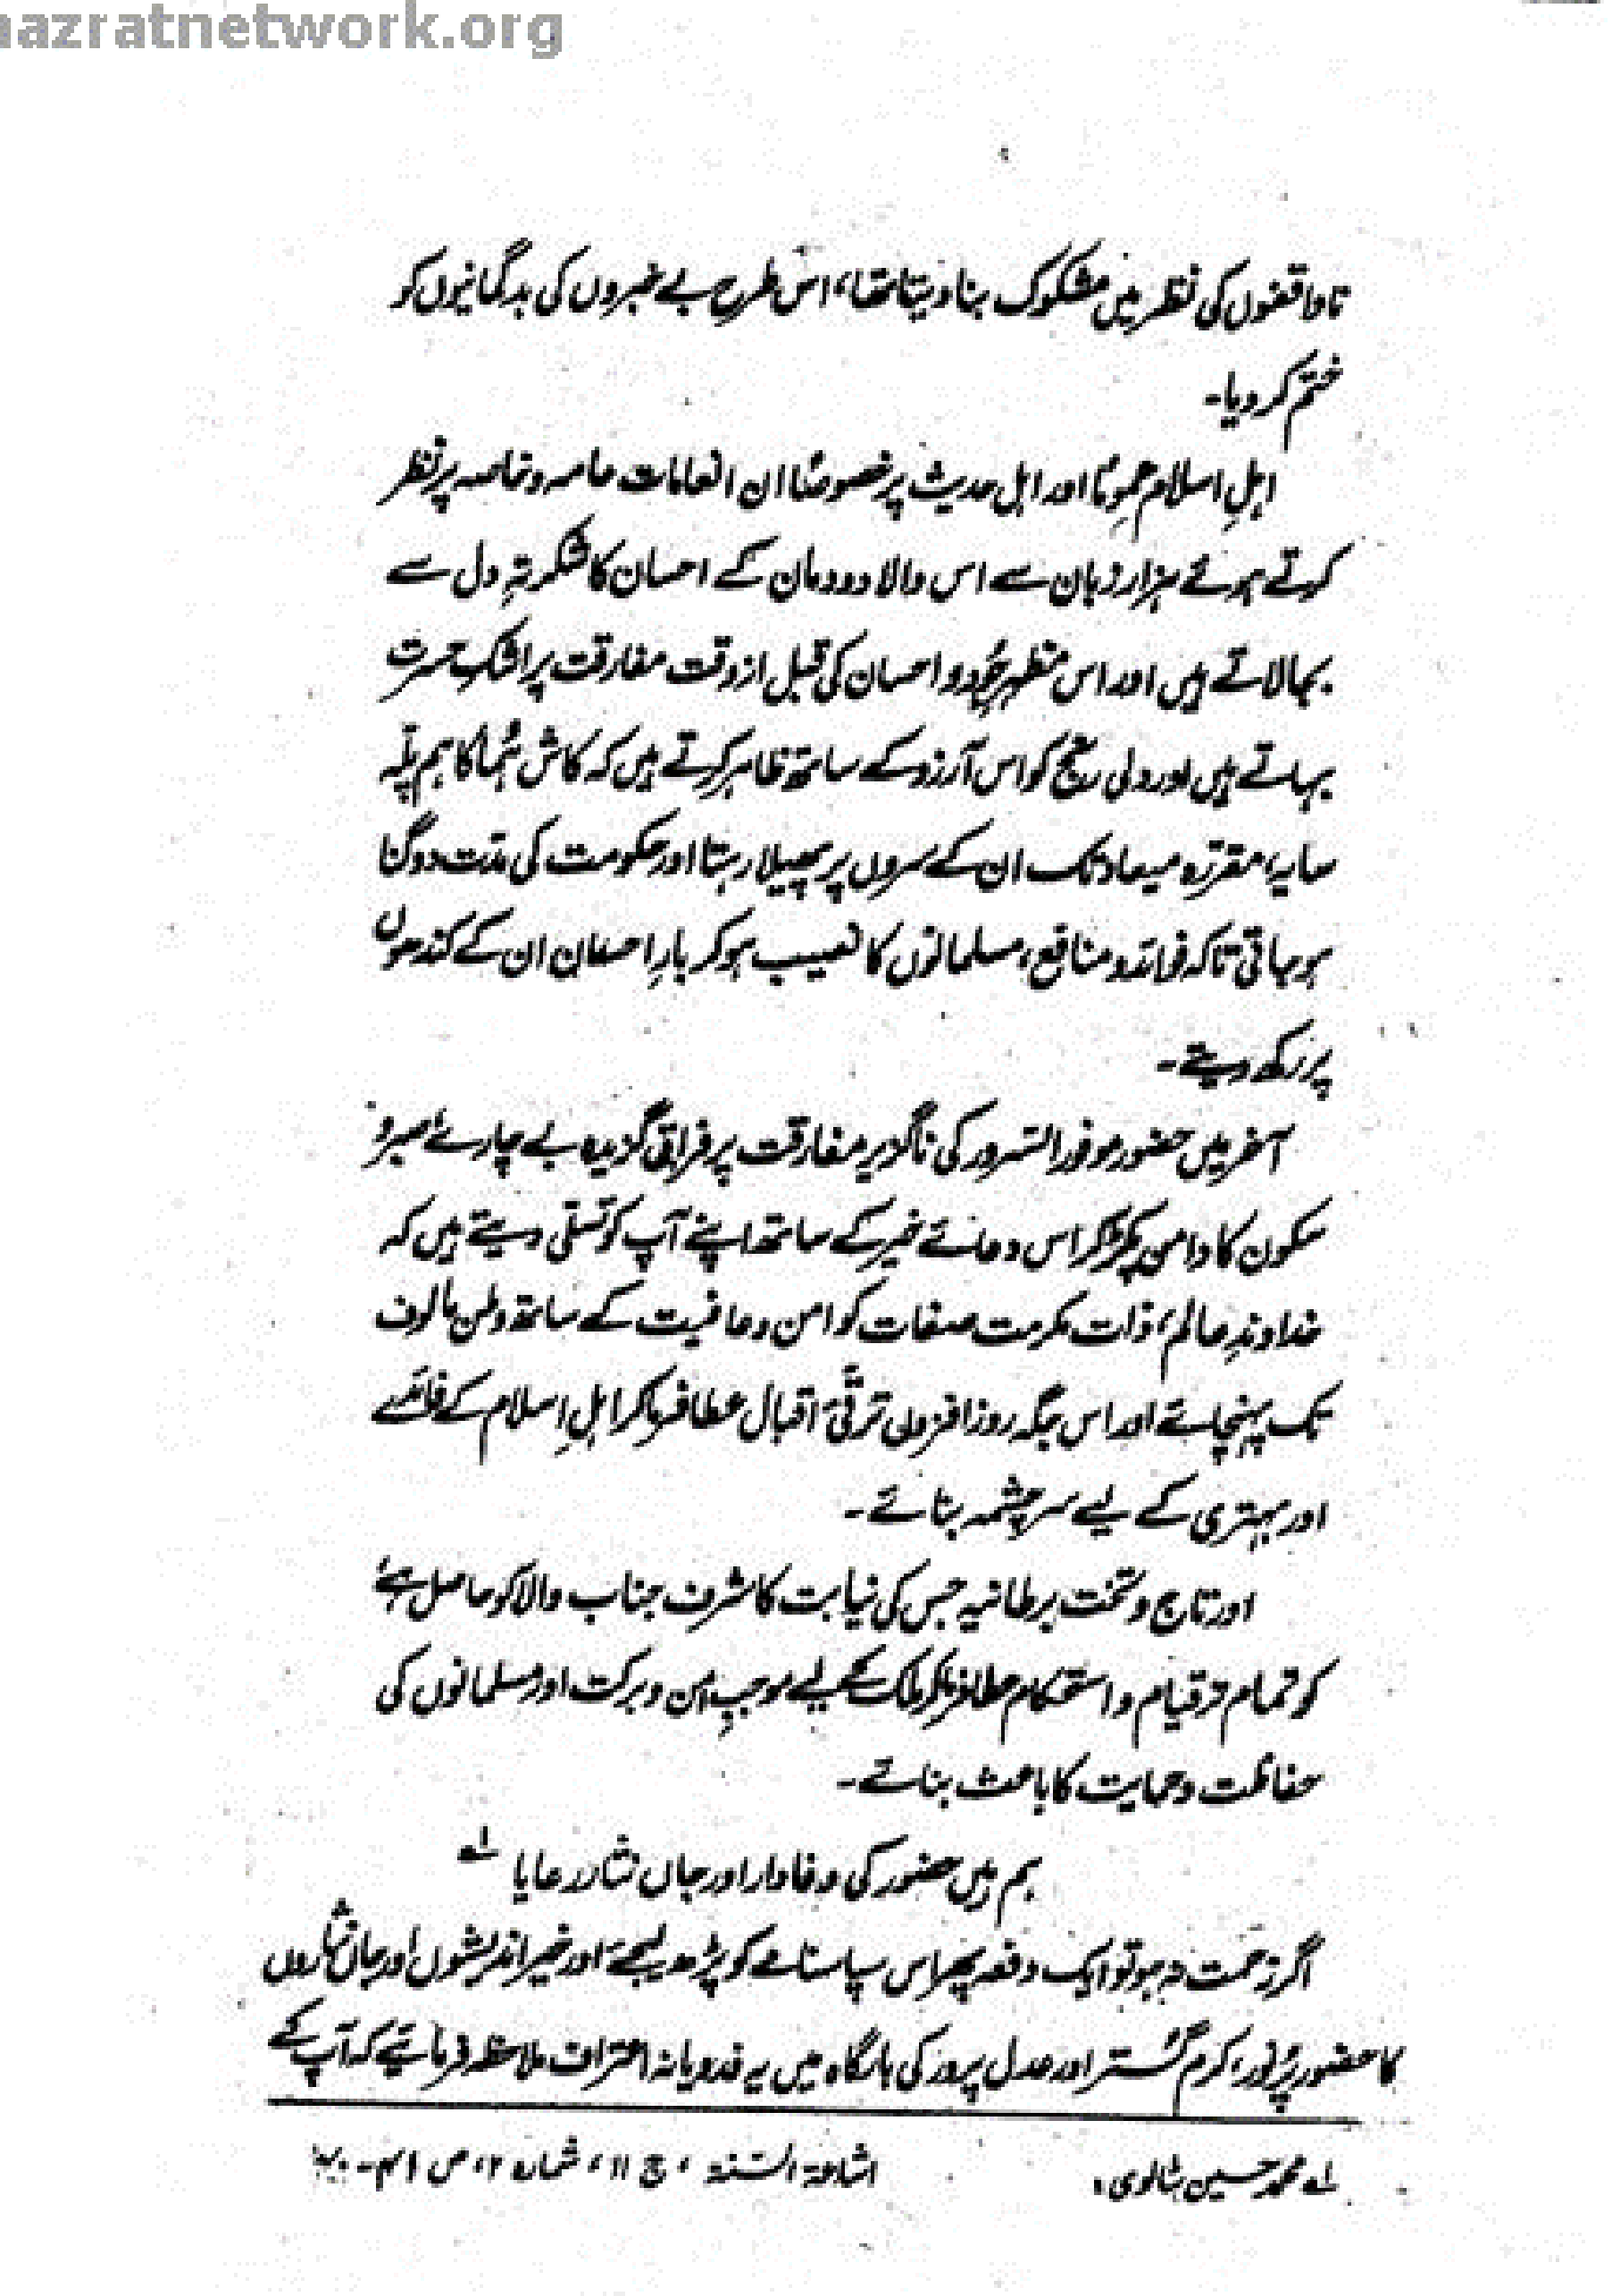 hazratnetwork.org
ناواقفوں کی نظر میں مشکوک بنا دیتا تھا، اس طرح بے خبروں کی بدگمانیوں کو
ختم کر دیا۔
اہلِ اسلام عموماً اور اہل حدیث پر خصوصاً ان انعامات عامہ و خاصہ پر نظر
کرتے ہوئے ہزار زبان سے اس والا دودمان کے احسان کا شکر تہِ دل سے
بجا لاتے ہیں اور اس مظہرِ جُود و احسان کی قبل از وقت مفارقت پر اشکِ حسرت
بہاتے ہیں اور دلی رنج کو اس آرزو کے ساتھ ظاہر کرتے ہیں کہ کاش ہُما کا ہم پلّہ
سایہ، مقررہ میعاد تک ان کے سروں پر پھیلا رہتا اور حکومت کی مدّت دوگنا
ہو جاتی تاکہ فوائد و منافع، مسلمانوں کا نصیب ہو کر بارِ احسان ان کے کندھوں
پر رکھ دیتے۔
آخر میں حضور موفور السّرور کی ناگزیر مفارقت پر فراق گزیدہ بے چارے، صبر و
سکون کا دامن پکڑ کر اس دعائے خیر کے ساتھ اپنے آپ کو تسلّی دیتے ہیں کہ
خداوندِ عالم، ذات مکرمت صفات کو امن و عافیت کے ساتھ وطن مالوف
تک پہنچائے اور اس جگہ روز افزوں ترقّیٔ اقبال عطا فرما کر اہلِ اسلام کے فائدے
اور بہتری کے لیے سرچشمہ بنائے۔
اور تاج و تخت برطانیہ جس کی نیابت کا شرف جناب والا کو حاصل ہے،
کو تمام تر قیام و استحکام عطا فرما کر ملک کے لیے موجبِ امن و برکت اور مسلمانوں کی
حفاظت و حمایت کا باعث بنائے۔
ہم ہیں حضور کی وفادار اور جاں نثار رعایا لے
اگر زحمت نہ ہو تو ایک دفعہ پھر اس سپاسنامے کو پڑھ لیجئے اور خیر اندیشوں اور جاں نثاروں
کا حضور پُر نور، کرم گُستر اور عدل پرور کی بارگاہ میں یہ فدویانہ اعتراف ملاحظہ فرمائیے کہ آپ کے
لے محمد حسین بٹالوی، اشاعۃ السّنۃ، ج ۱۱، شمارہ ۲، ص